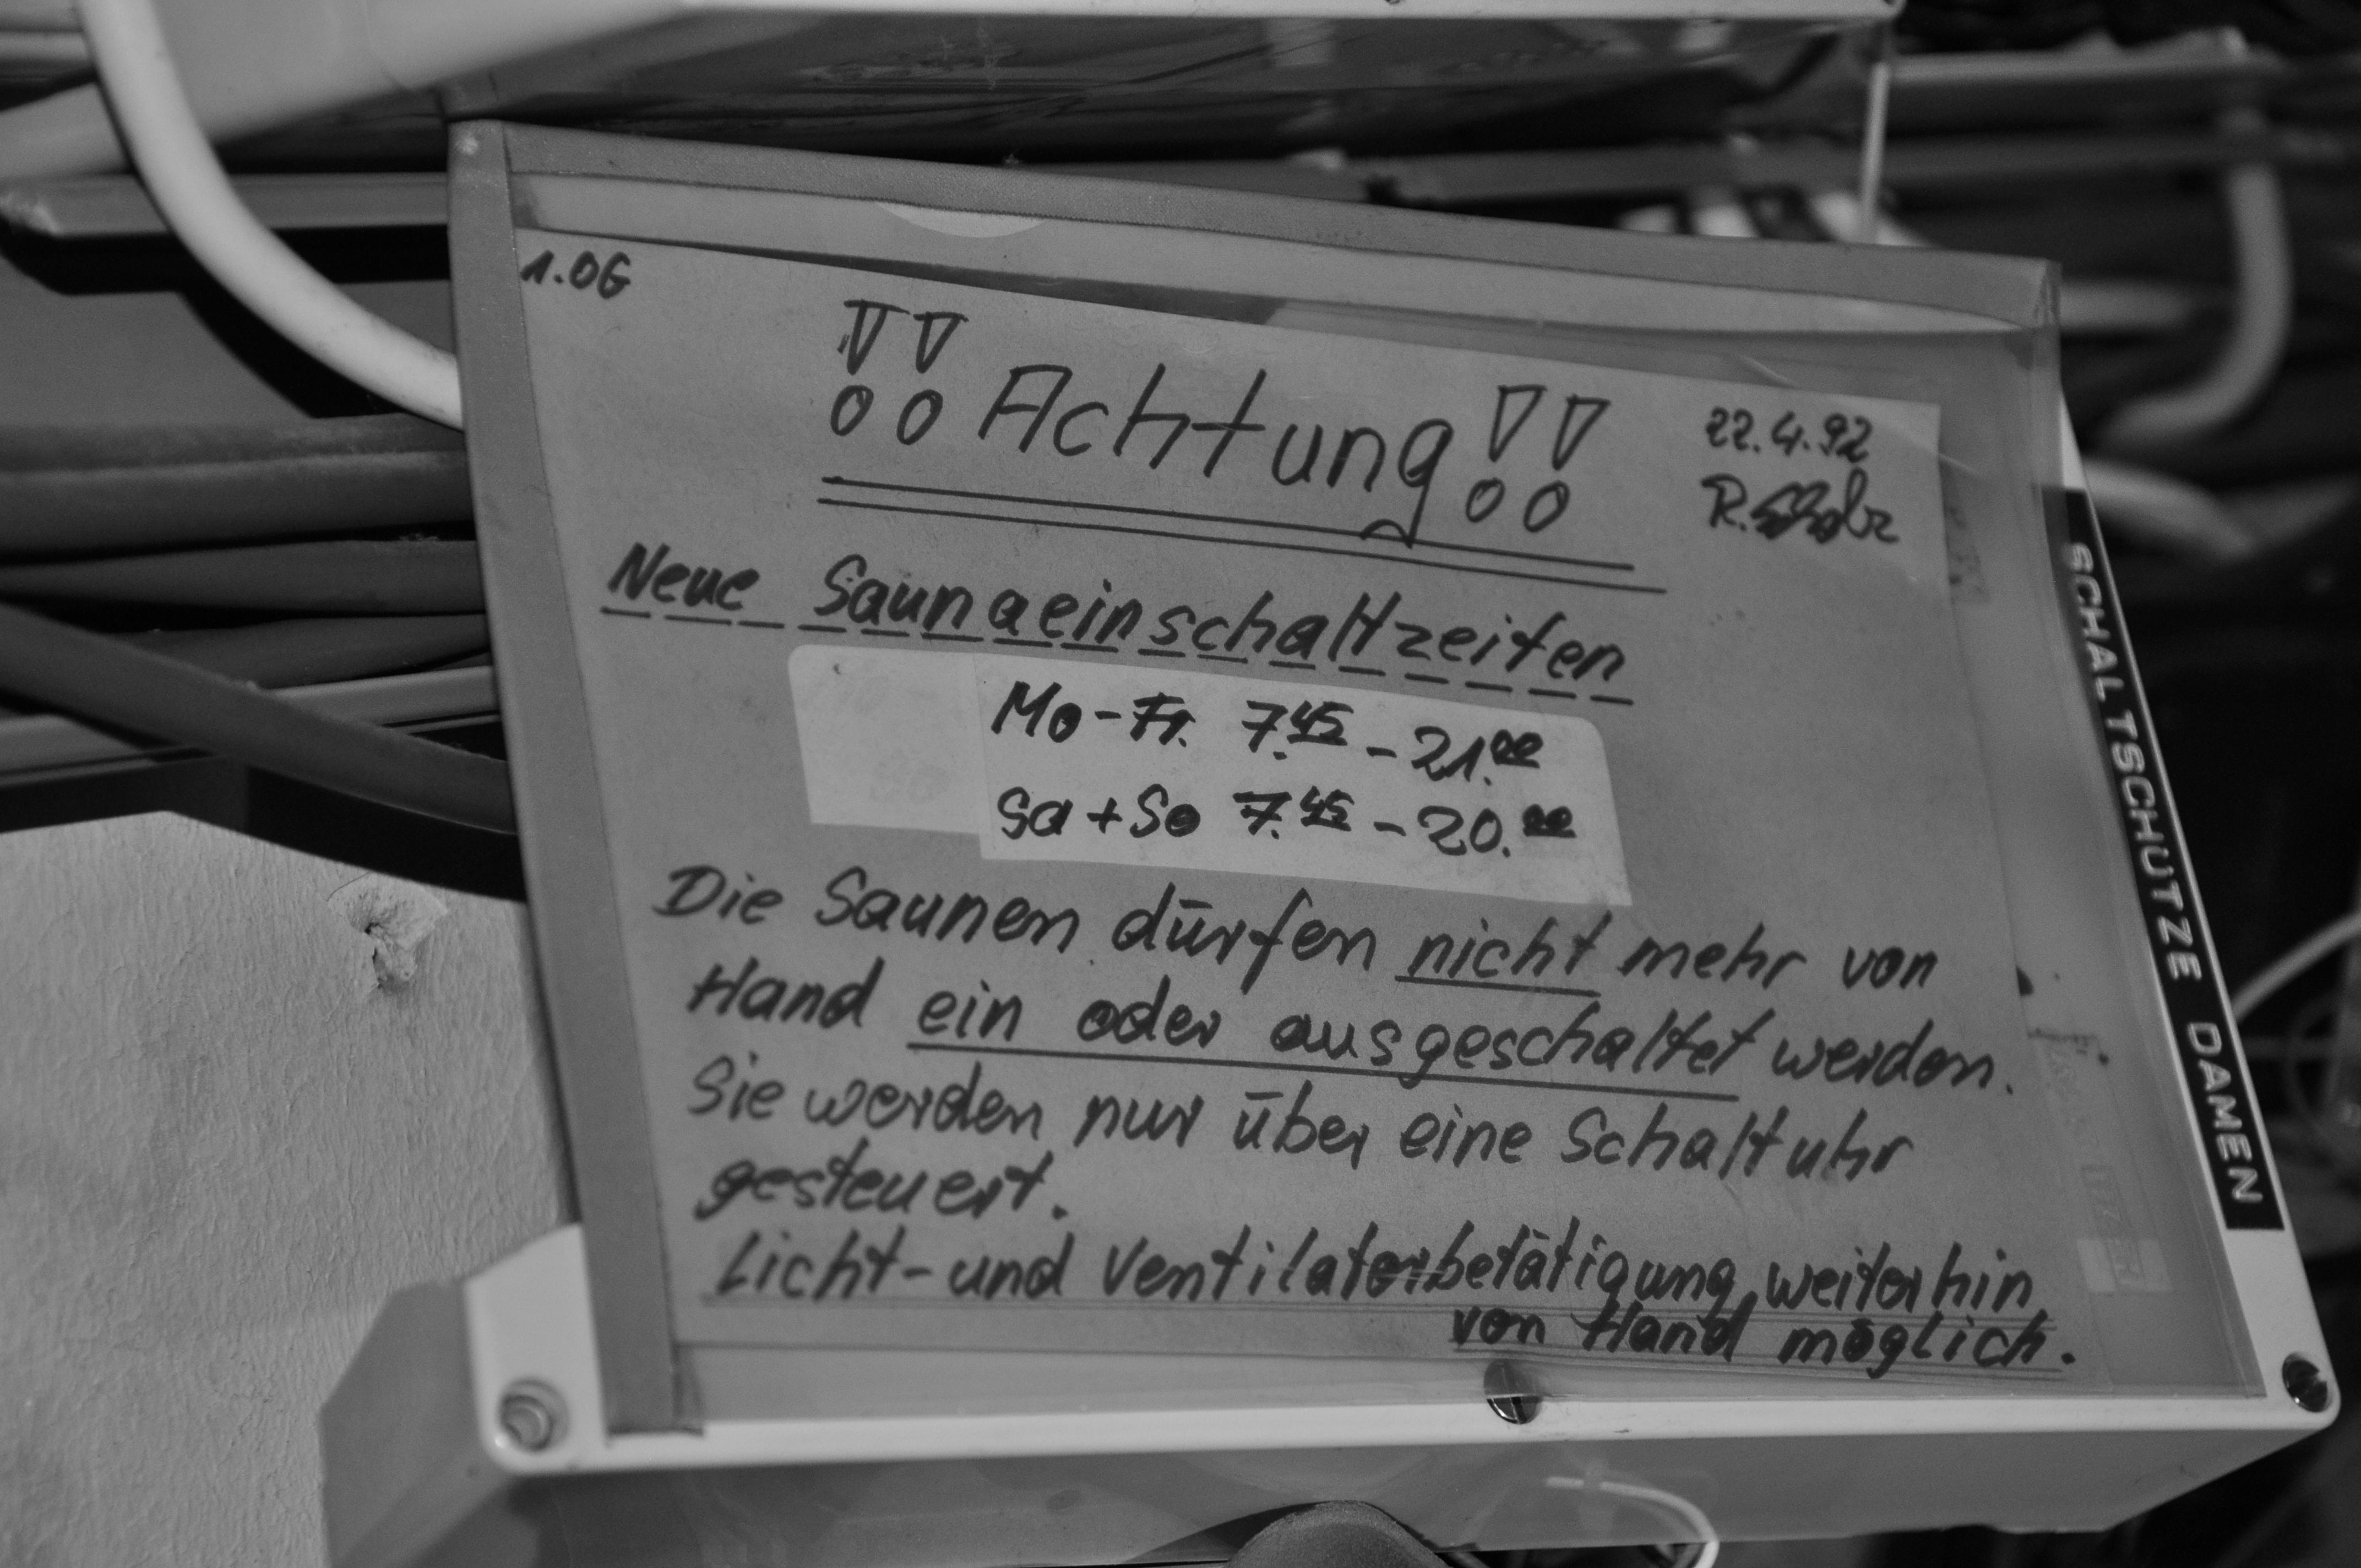 1.OG
!! Achtung !!
22.4.92
R.
Neue Saunaeinschaltzeiten
Mo-Fr. 7.45 - 21.00
Sa + So 7.45 - 20.00
Die Saunen dürfen nicht mehr von
Hand ein oder ausgeschaltet werden.
Sie werden nur über eine Schaltuhr
gesteuert.
Licht- und Ventilatorbetätigung weiterhin
von Hand möglich.
SCHALTSCHÜTZE DAMEN